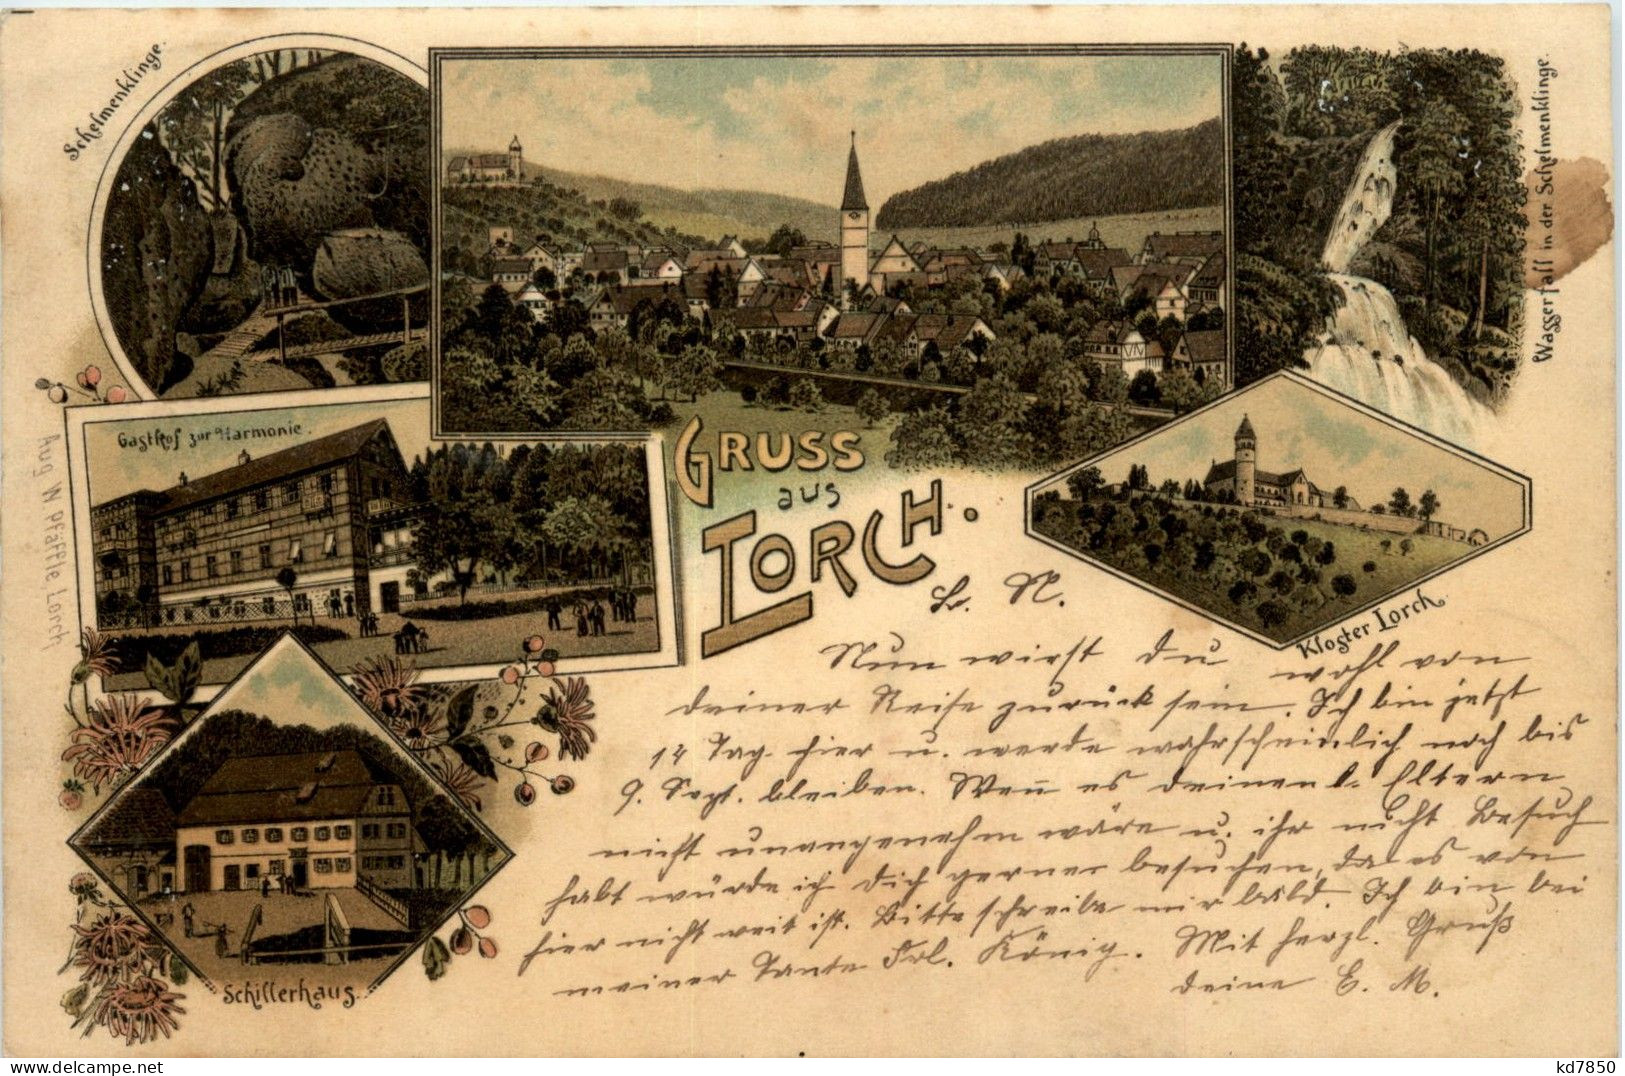 Schelmenklinge.
Wasserfall in der Schelmenklinge.
Gasthof zur Harmonie.
GRUSS
aus
LORCH.
Kloster Lorch.
Aug W Pfäffle Lorch
Schillerhaus.
L. N.
Nun wirst du wohl von
deiner Reise zurück sein. Ich bin jetzt
14 Tag. hier u. werde wahrscheinlich noch bis
9. Sept. bleiben. Wen̅ es deinen l. Eltern
nicht unangenehm wäre u. ihr nicht Besuch
habt würde ich dich gerne besuchen, da es von
hier nicht weit ist. Bitte schreibe mir bald. Ich bin bei
meiner Tante Frl. König. Mit herzl. Gruß
deine E. M.
kd7850